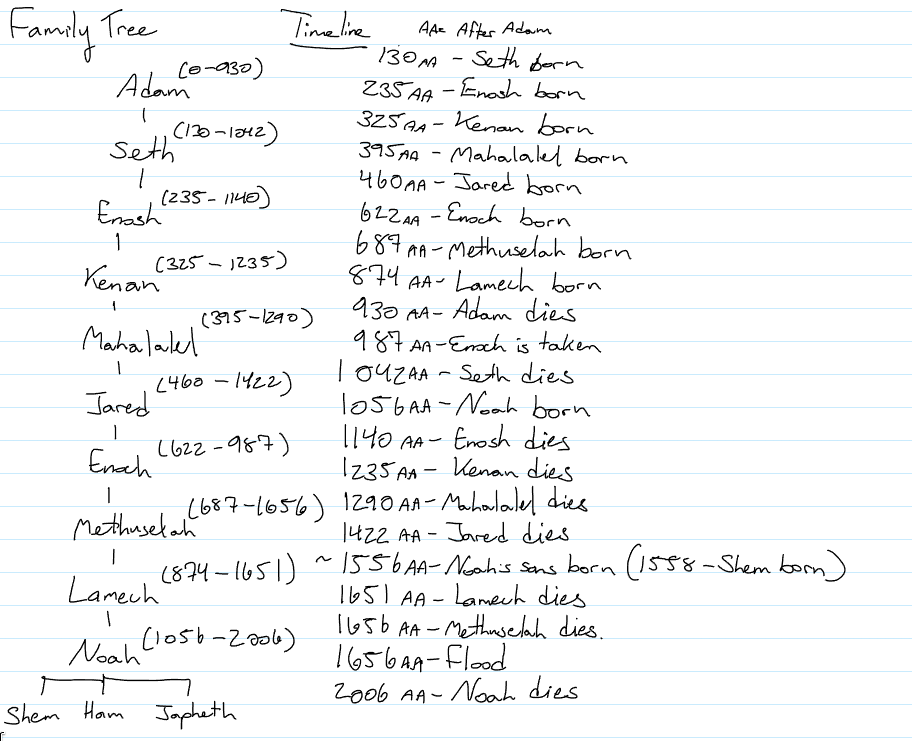 Family Tree
Adam (0-930)
Seth (130-1042)
Enosh (235-1140)
Kenan (325-1235)
Mahalalel (395-1290)
Jared (460-1422)
Enoch (622-987)
Methuselah (687-1656)
Lamech (874-1651)
Noah (1056-2006)
Shem Ham Japheth
Timeline AA= After Adam
130 AA - Seth born
235 AA - Enosh born
325 AA - Kenan born
395 AA - Mahalalel born
460 AA - Jared born
622 AA - Enoch born
687 AA - Methuselah born
874 AA - Lamech born
930 AA - Adam dies
987 AA - Enoch is taken
1042 AA - Seth dies
1056 AA - Noah born
1140 AA - Enosh dies
1235 AA - Kenan dies
1290 AA - Mahalalel dies
1422 AA - Jared dies
~ 1556 AA - Noah's sons born (1558 - Shem born)
1651 AA - Lamech dies
1656 AA - Methuselah dies.
1656 AA - Flood
2006 AA - Noah dies